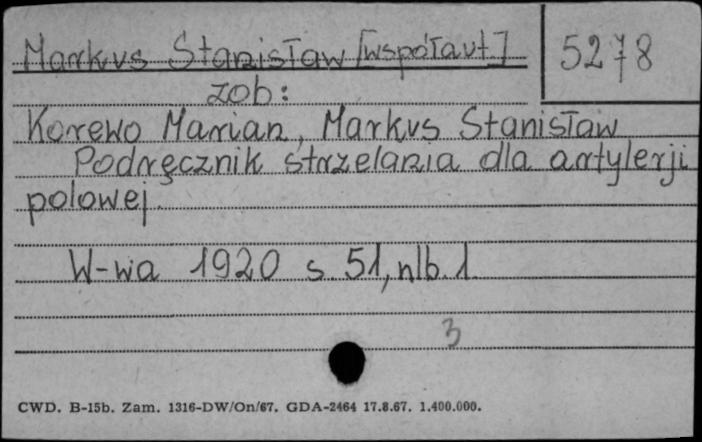 Markus Stanisław [współaut.] 5278
zob:
Korewo Marian, Markus Stanisław
Podręcznik strzelania dla artylerji
polowej.
W-wa 1920 s. 51, nlb. 1.
3
CWD. B-15b. Zam. 1316-DW/On/67. GDA-2464 17.8.67. 1.400.000.